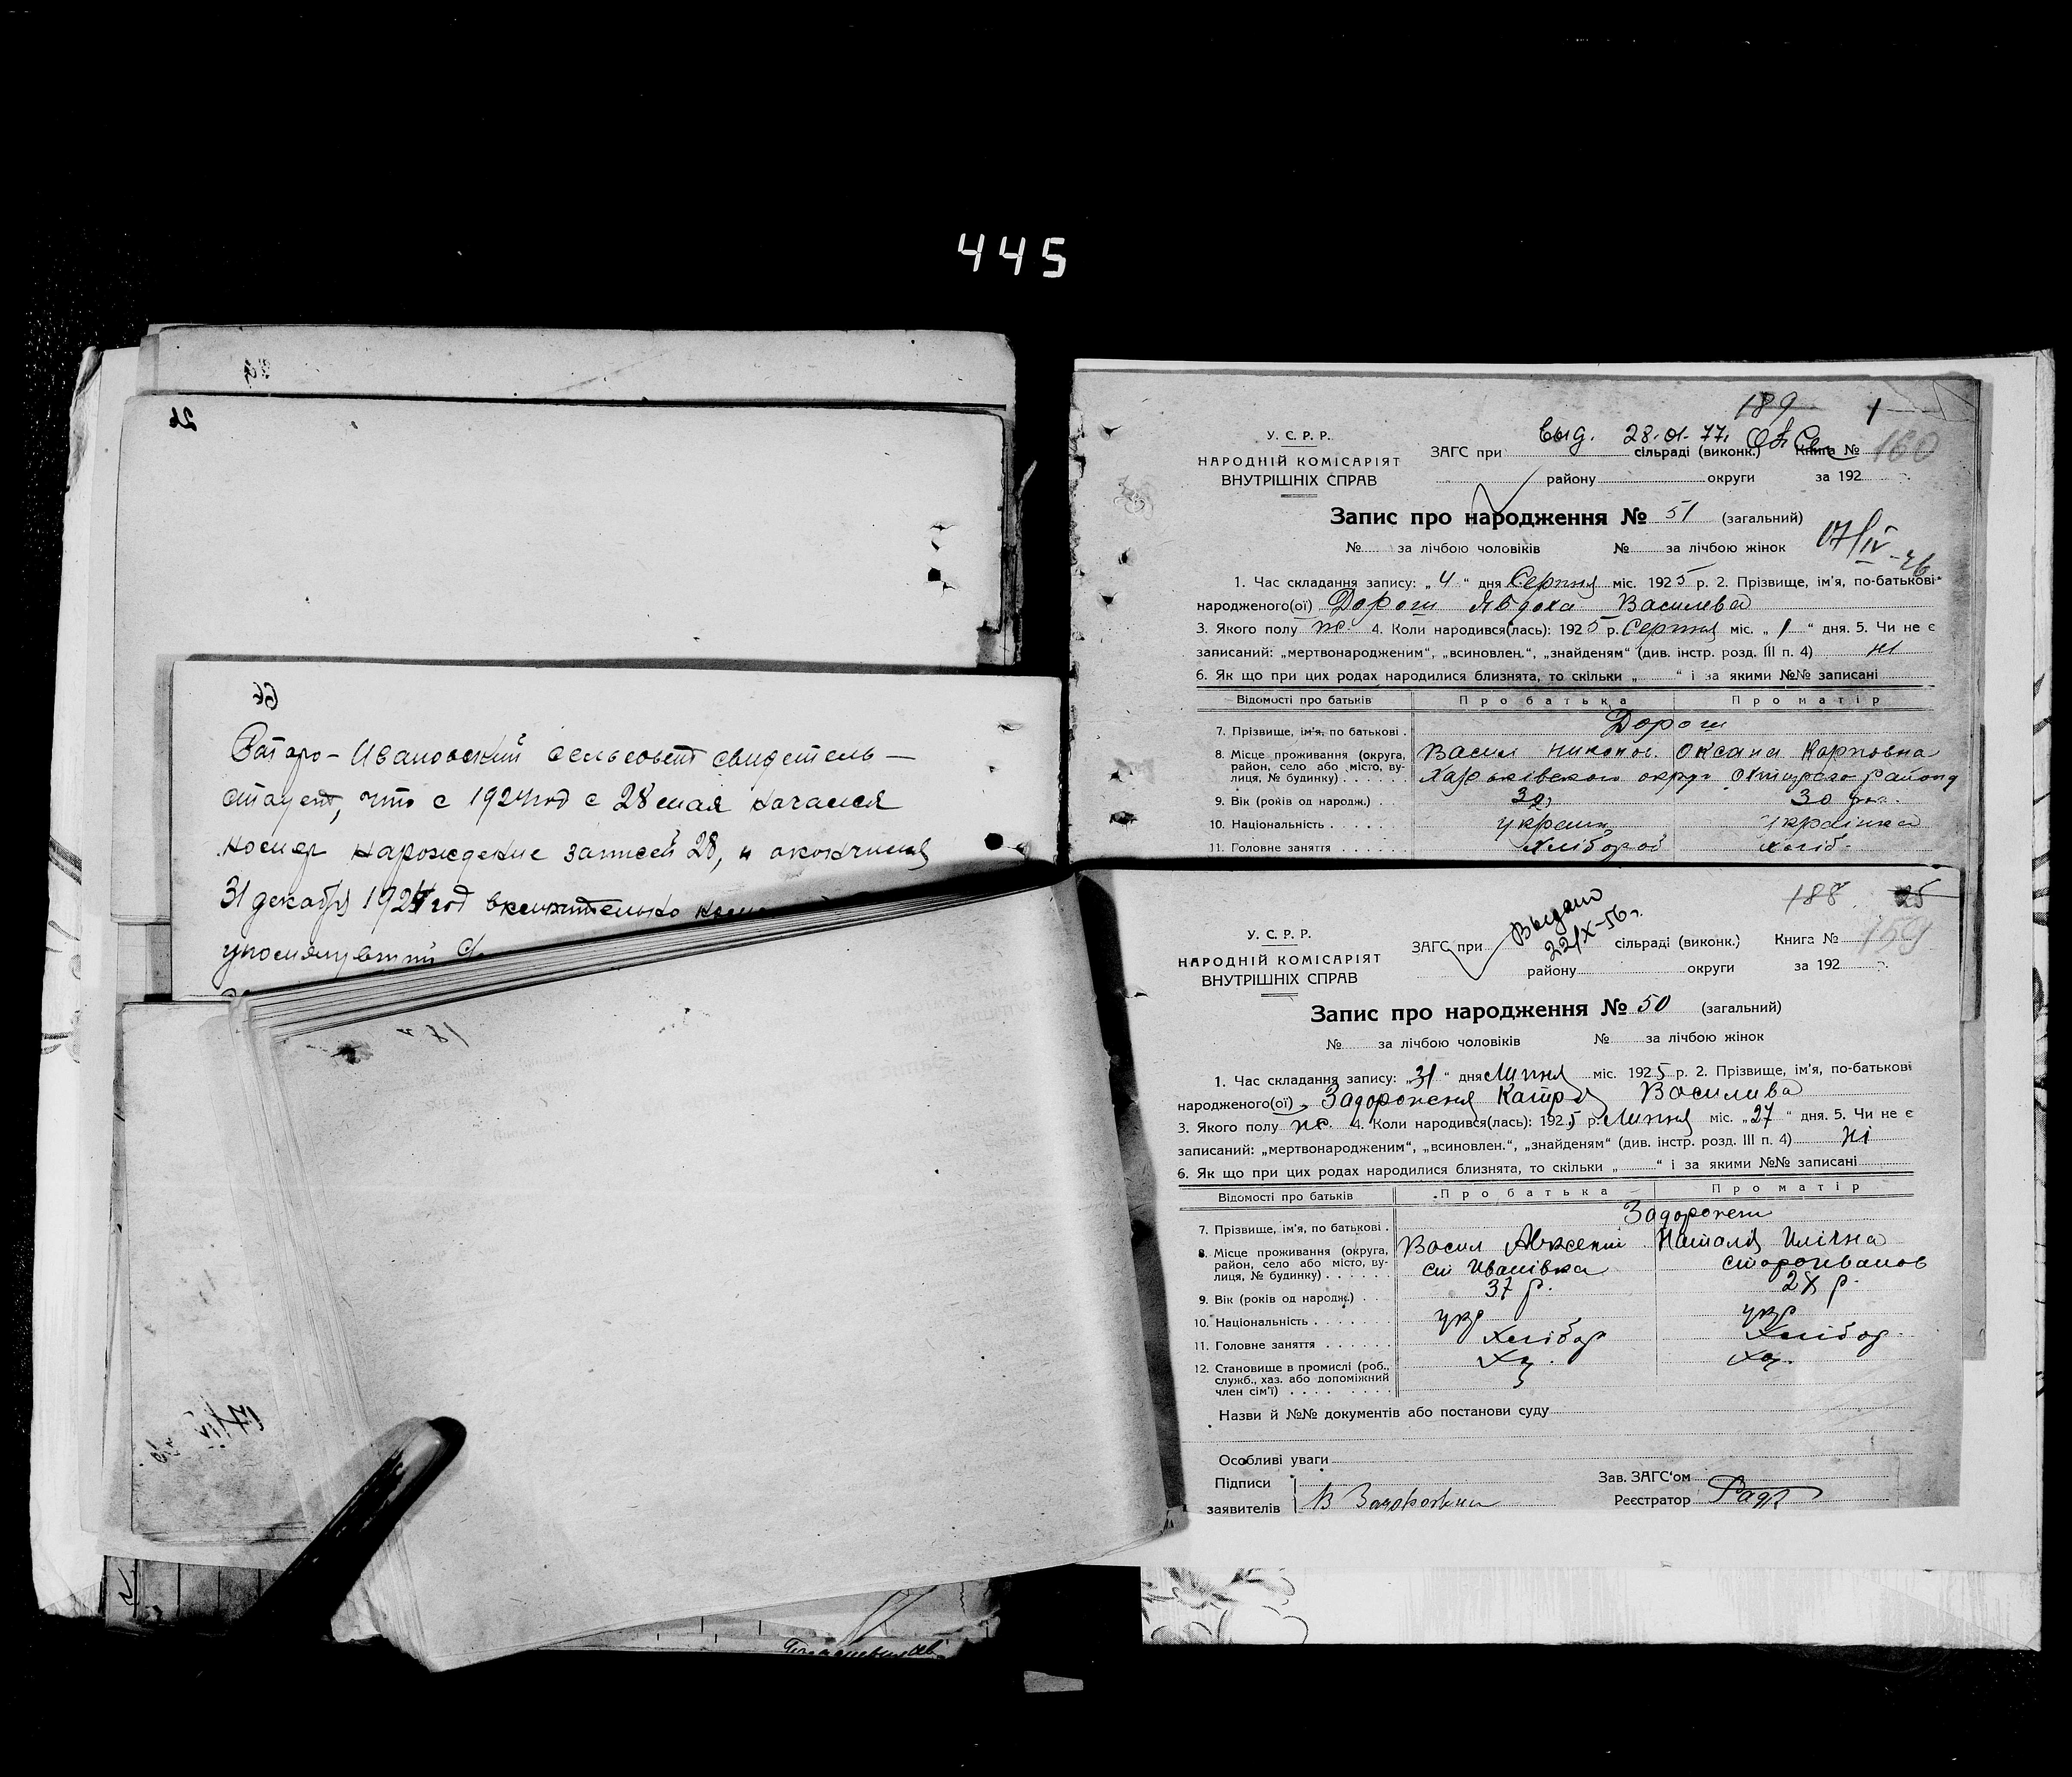 445
26
Старо-Ивановский сельсовет свидетель-
ствует, что с 1924 год с 28 мая начался
номер нарождение записей 28, и окончился
31 декабря 1924 год включительно
189 1
Выд. 28.01.77.
У. С. Р. Р.
НАРОДНІЙ КОМІСАРІЯТ
ВНУТРІШНІХ СПРАВ
ЗАГС при сільраді (виконк.) Книга № 160
району округи за 192
Запис про народження № 51 (загальний)
№ за лічбою чоловіків № за лічбою жінок
17/IV-46
1. Час складання запису: „4“ дня Серпня міс. 1925 р. 2. Прізвище, ім'я, по-батькові
народженого(ої) Дорош Явдоха Василева
3. Якого полу ж. 4. Коли народився(лась): 1925 р. Серпня міс. „1“ дня. 5. Чи не є
записаний: „мертвонародженим“, „всиновлен.“, „знайденям“ (див. інстр. розд. III п. 4) ні
6. Як що при цих родах народилися близнята, то скільки „ “ і за якими №№ записані
Відомості про батьків Про батька Про матір
7. Прізвище, ім'я, по батькові . Дорош
Васил Оксана Карповна
8. Місце проживання (округа, район, село або місто, ву-
лиця, № будинку) . . . . Харьківского округ району
9. Вік (років од народж.) . 30
10. Національність . . . . . українка
11. Головне заняття . . . . . . Хлібороб хліб.
188 25
Выдано
22/X-56 г.
У. С. Р. Р.
НАРОДНІЙ КОМІСАРІЯТ
ВНУТРІШНІХ СПРАВ
ЗАГС при сільраді (виконк.) Книга № 159
району округи за 192
Запис про народження № 50 (загальний)
№ за лічбою чоловіків № за лічбою жінок
1. Час складання запису: „31“ дня Липня міс. 1925 р. 2. Прізвище, ім'я, по-батькові
народженого(ої) Задорожня Катря Василива
3. Якого полу ж. 4. Коли народився(лась): 1925 р. Липня міс. „27“ дня. 5. Чи не є
записаний: „мертвонародженим“, „всиновлен.“, „знайденям“ (див. інстр. розд. III п. 4) ні
6. Як що при цих родах народилися близнята, то скільки „ “ і за якими №№ записані
Відомості про батьків Про батька Про матір
7. Прізвище, ім'я, по батькові . Задорожни
Васил Наталія Илічна
8. Місце проживання (округа,
район, село або місто, ву-
лиця, № будинку) . . . . . . ст Иванівка староиванов
9. Вік (років од народж.) . . 37 р. 28 р.
10. Національність . . . . . . . укр укр
11. Головне заняття . . . . . . хлібор хлібор.
12. Становище в промислі (роб.,
служб., хаз. або допоміжний
член сім'ї) . . . . . . . . хз. хз.
Назви й №№ документів або постанови суду
Особливі уваги
Підписи
заявителів
Зав. ЗАГС'ом
Реєстратор